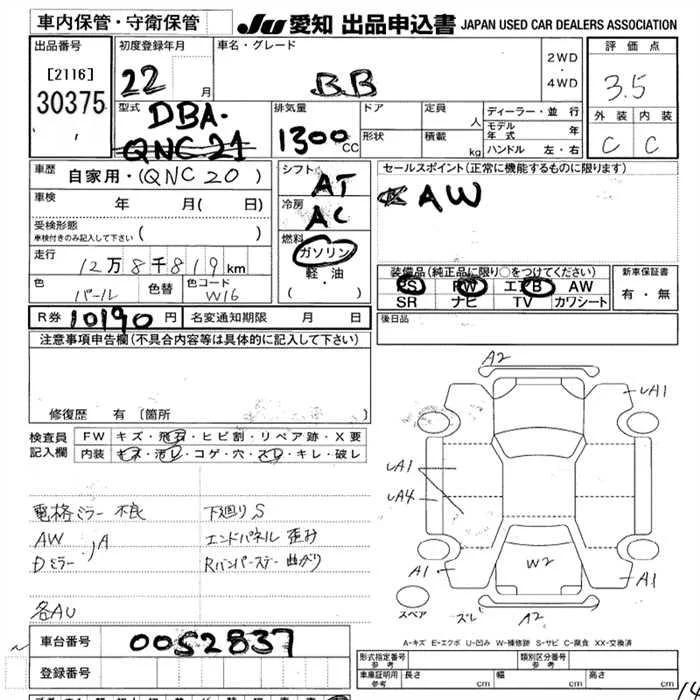 車内保管・守衛保管
JU 愛知 出品申込書 JAPAN USED CAR DEALERS ASSOCIATION
出品番号
[2116]
30375
初度登録年月
22 月
車名・グレード
BB
2WD
・
4WD
評価点
3.5
外装 内装
C C
型式
DBA-
QNC21
排気量
1300 CC
ドア
形状
定員 人
積載 kg
ディーラー・並行
モデル年式 年
ハンドル 左・右
車歴
自家用・(QNC20)
車検 年 月( 日)
受検形態
車検付きのみ記入して下さい ( )
走行
12万8千819km
色
パール
色替
色コード
W16
シフト
AT
冷房
AC
燃料
ガソリン
軽・油
( ・ )
セールスポイント(正常に機能するものに限ります)
AW
装備品(純正品に限り○をつけてください)
PS PW エアB AW
SR ナビ TV カワシート
新車保証書
有・無
後日品
R券 10190 円 名変通知期限 月 日
注意事項申告欄(不具合内容等は具体的に記入して下さい)
修復歴 有〔箇所 〕
検査員
記入欄
FW キズ・飛石・ヒビ割・リペア跡・X要
内装 キズ・汚レ・コゲ・穴・スレ・キレ・破レ
電格ミラー 不良
AW
Dミラー 〉A
各AU
下廻りS
エンドパネル 歪み
Rバンパーステー 曲がり
A2
UA1
UA1
UA4
A1
W2
A1
スペア
ズレ
A2
A-キズ E-エクボ U-凹み W-補修跡 S-サビ C-腐食 XX-交換済
車台番号 0052837
登録番号
形式指定番号
参考
類別区分番号
参考
車庫証明用
参考
長さ cm
幅 cm
高さ cm